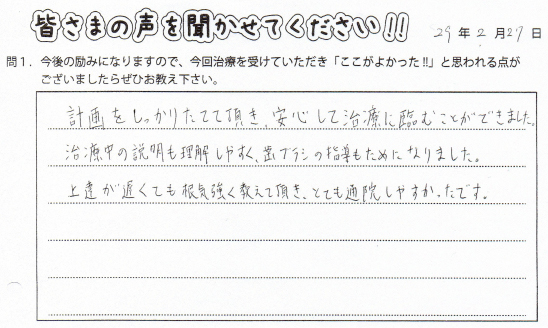 皆さまの声を聞かせてください!!
29年2月27日
問1．今後の励みになりますので、今回治療を受けていただき「ここがよかった!!」と思われる点が
ございましたらぜひお教え下さい。
計画をしっかりたてて頂き、安心して治療に臨むことができました。
治療中の説明も理解しやすく、歯ブラシの指導もためになりました。
上達が遅くても根気強く教えて頂き、とても通院しやすかったです。